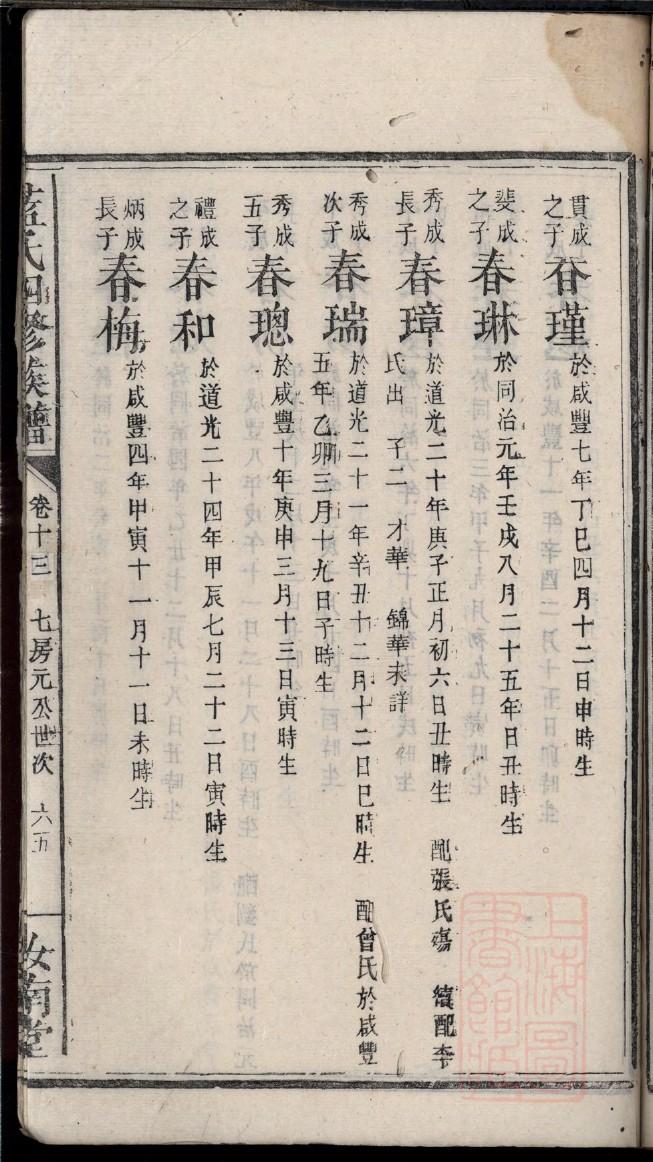 貫成之子 春瑾 於咸豐七年丁巳四月十二日申時生
斐成之子 春琳 於同治元年壬戌八月二十五年日丑時生
秀成長子 春璋 於道光二十年庚子正月初六日丑時生 配張氏殤 續配李
氏出 子二 才華 錦華未詳
秀成次子 春瑞 於道光二十一年辛丑十二月十二日巳時生 配曾氏於咸豐
五年乙卯三月十九日子時生
秀成五子 春璁 於咸豐十年庚申三月十三日寅時生
禮成之子 春和 於道光二十四年甲辰七月二十二日寅時生
炳成長子 春梅 於咸豐四年甲寅十一月十一日未時生
藍氏四修族譜 卷十三 七房元公世次 六五 汝南堂
上海圖書館藏